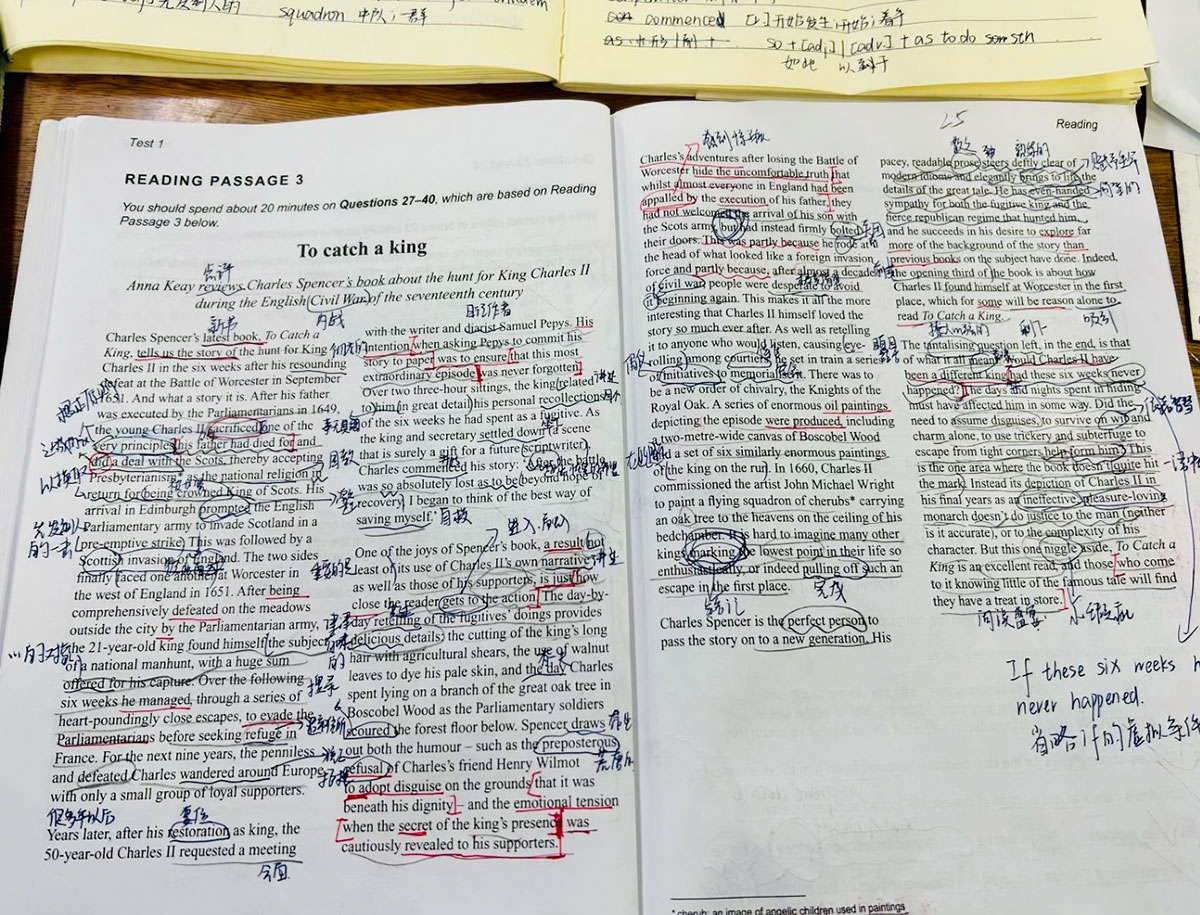 squadron 中队；群
commenced [v.]开始发生；开始；着手
so + [adj.] | [adv.] + as to do sth
如此 以至于
Test 1
READING PASSAGE 3
You should spend about 20 minutes on Questions 27–40, which are based on Reading
Passage 3 below.
To catch a king
Anna Keay reviews Charles Spencer's book about the hunt for King Charles II
during the English Civil War of the seventeenth century
内战
Charles Spencer's latest book, To Catch a
King, tells us the story of the hunt for King
Charles II in the six weeks after his resounding
defeat at the Battle of Worcester in September
1651. And what a story it is. After his father
was executed by the Parliamentarians in 1649,
the young Charles II sacrificed one of the
very principles his father had died for and
did a deal with the Scots, thereby accepting
Presbyterianism* as the national religion in
return for being crowned King of Scots. His
arrival in Edinburgh prompted the English
Parliamentary army to invade Scotland in a
pre-emptive strike. This was followed by a
Scottish invasion of England. The two sides
finally faced one another at Worcester in
the west of England in 1651. After being
comprehensively defeated on the meadows
outside the city by the Parliamentarian army,
the 21-year-old king found himself the subject
of a national manhunt, with a huge sum
offered for his capture. Over the following
six weeks he managed, through a series of
heart-poundingly close escapes, to evade the
Parliamentarians before seeking refuge in
France. For the next nine years, the penniless
and defeated Charles wandered around Europe
with only a small group of loyal supporters.
很多年以后 复位
Years later, after his restoration as king, the
50-year-old Charles II requested a meeting
会面
日记作者
with the writer and diarist Samuel Pepys. His
intention when asking Pepys to commit his
story to paper was to ensure that this most
extraordinary episode was never forgotten.
Over two three-hour sittings, the king related
to him in great detail his personal recollections
of the six weeks he had spent as a fugitive. As
the king and secretary settled down (a scene
that is surely a gift for a future scriptwriter),
Charles commenced his story: 'After the battle
was so absolutely lost as to be beyond hope of
recovery, I began to think of the best way of
saving myself.'
自救
One of the joys of Spencer's book, a result not
least of its use of Charles II's own narrative
as well as those of his supporters, is just how
close the reader gets to the action. The day-by-
day retelling of the fugitives' doings provides
delicious details: the cutting of the king's long
hair with agricultural shears, the use of walnut
leaves to dye his pale skin, and the day Charles
spent lying on a branch of the great oak tree in
Boscobel Wood as the Parliamentary soldiers
scoured the forest floor below. Spencer draws
out both the humour – such as the preposterous
refusal of Charles's friend Henry Wilmot
to adopt disguise on the grounds that it was
beneath his dignity – and the emotional tension
when the secret of the king's presence was
cautiously revealed to his supporters.
25
Reading
Charles's adventures after losing the Battle of
Worcester hide the uncomfortable truth that
whilst almost everyone in England had been
appalled by the execution of his father, they
had not welcomed the arrival of his son with
the Scots army, but had instead firmly bolted
their doors. This was partly because he rode at
the head of what looked like a foreign invasion
force and partly because, after almost a decade
of civil war, people were desperate to avoid
it beginning again. This makes it all the more
interesting that Charles II himself loved the
story so much ever after. As well as retelling
it to anyone who would listen, causing eye-
rolling among courtiers, he set in train a series
of initiatives to memorialise it. There was to
be a new order of chivalry, the Knights of the
Royal Oak. A series of enormous oil paintings
depicting the episode were produced, including
a two-metre-wide canvas of Boscobel Wood
and a set of six similarly enormous paintings
of the king on the run. In 1660, Charles II
commissioned the artist John Michael Wright
to paint a flying squadron of cherubs* carrying
an oak tree to the heavens on the ceiling of his
bedchamber. It is hard to imagine many other
kings marking the lowest point in their life so
enthusiastically, or indeed pulling off such an
escape in the first place.
完成
Charles Spencer is the perfect person to
pass the story on to a new generation. His
pacey, readable prose steers deftly clear of
modern idioms and elegantly brings to life the
details of the great tale. He has even-handed
sympathy for both the fugitive king and the
fierce republican regime that hunted him,
and he succeeds in his desire to explore far
more of the background of the story than
previous books on the subject have done. Indeed,
the opening third of the book is about how
Charles II found himself at Worcester in the first
place, which for some will be reason alone to
read To Catch a King.
The tantalising question left, in the end, is that
of what it all meant. Would Charles II have
been a different king had these six weeks never
happened? The days and nights spent in hiding
must have affected him in some way. Did the
need to assume disguises, to survive on wit and
charm alone, to use trickery and subterfuge to
escape from tight corners help form him? This
is the one area where the book doesn't quite hit
the mark. Instead its depiction of Charles II in
his final years as an ineffective, pleasure-loving
monarch doesn't do justice to the man (neither
is it accurate), or to the complexity of his
character. But this one niggle aside, To Catch a
King is an excellent read, and those who come
to it knowing little of the famous tale will find
they have a treat in store.
If these six weeks h
never happened.
省略if的虚拟条件
* cherub: an image of angelic children used in paintings